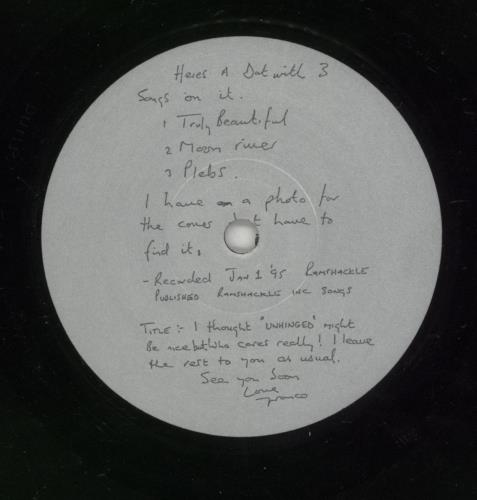 Heres A Dat with 3
Songs on it.
1 Truly Beautiful
2 Moon river
3 Plebs.
I have a photo for
the cover but have to
find it,
- Recorded JAN 1 '95 RAMSHACKLE
PUBLISHED RAMSHACKLE INC SONGS
TITLE :- I thought "UNHINGED" might
Be nice but who cares really! I leave
the rest to you as usual.
See you Soon
Love
Franco